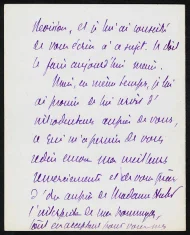 et je lui ai conseillé
de vous écrire à ce sujet. Il doit
le faire aujourd'hui même.
Mais, en même temps, je lui
ai promis de lui servir d'
introducteur auprès de vous,
ce qui m'a permis de vous
redire encore mes meilleurs
et de vous prier
d'être auprès de Madame
l'interprète de mes hommages,
tout en acceptant pour vous mes